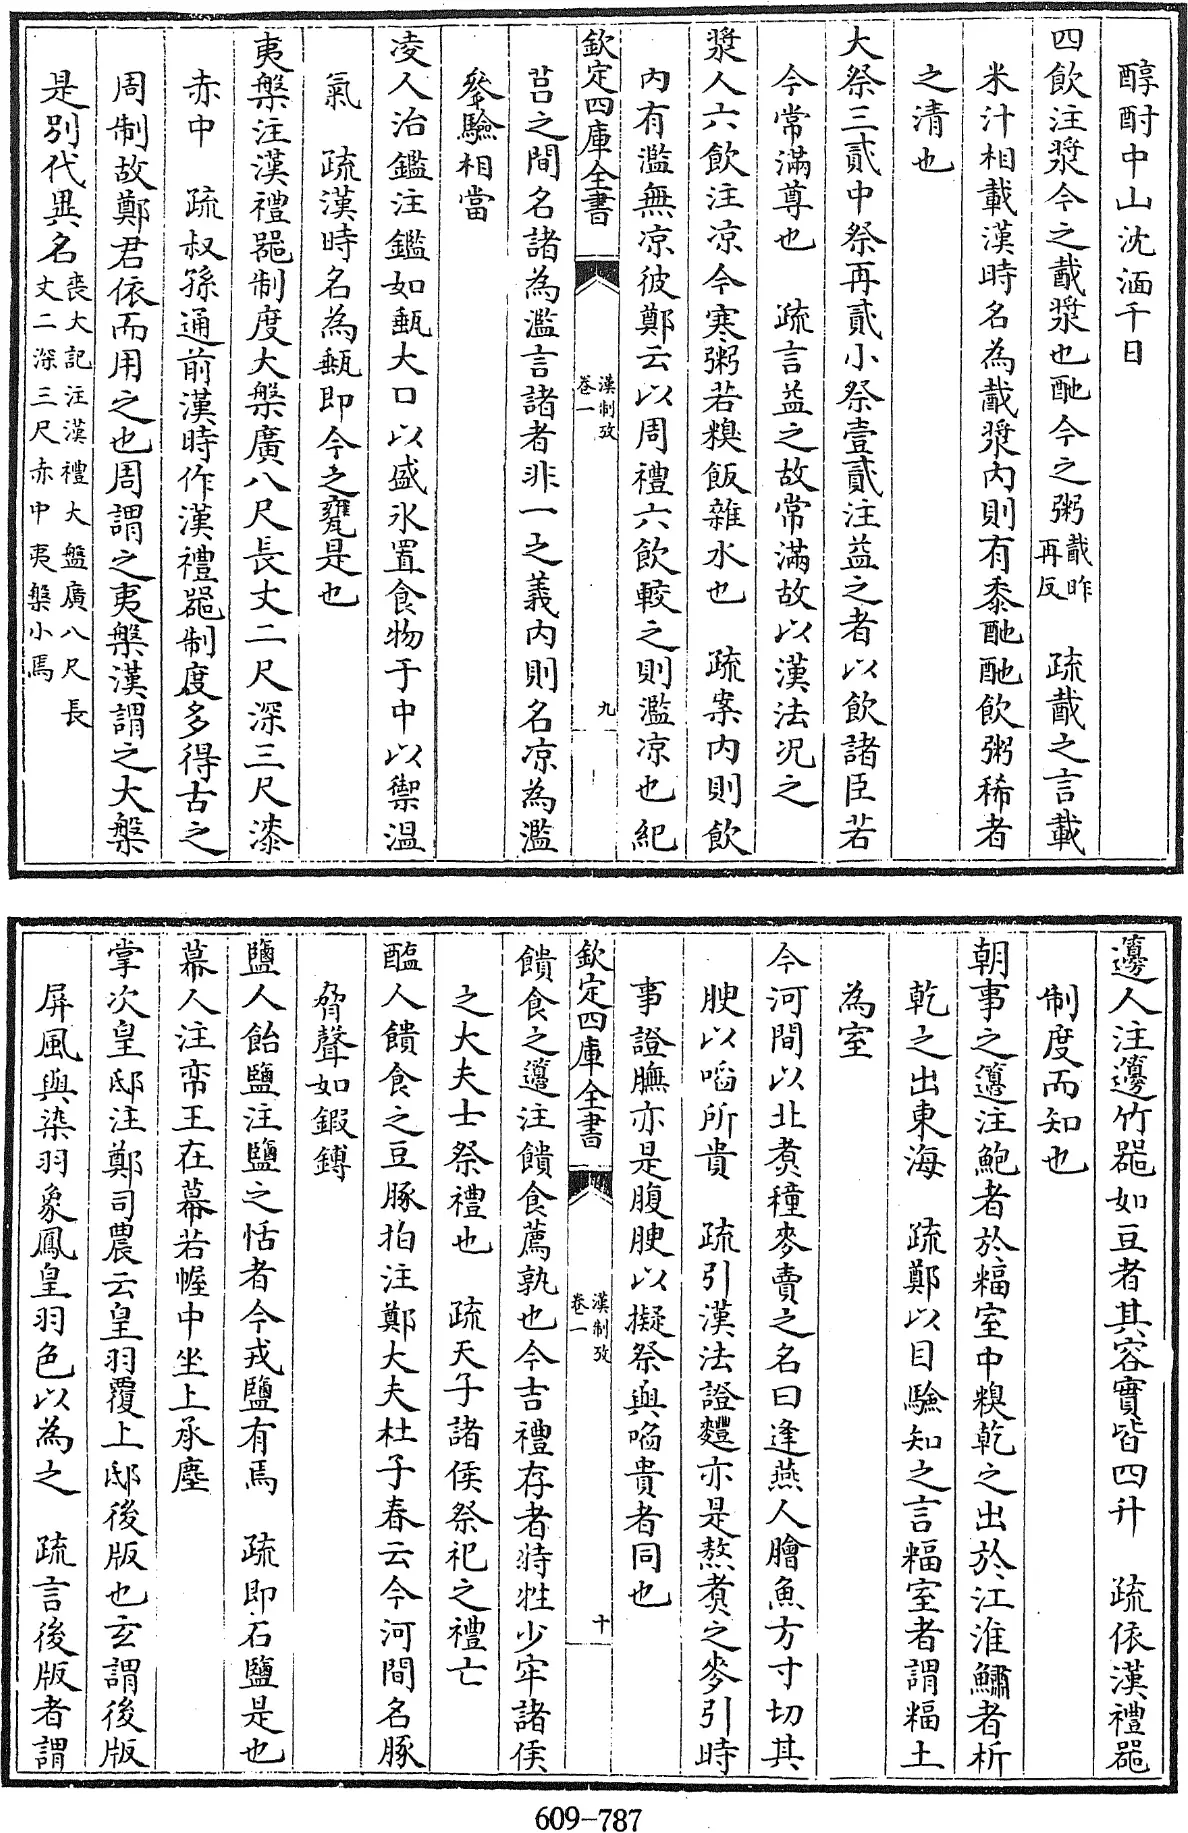 醇酎中山沈湎千日
四飲注漿今之酨漿也酏今之粥酨昨再反　疏酨之言載
米汁相載漢時名為酨漿内則有黍酏酏飲粥稀者
之清也
大祭三貳中祭再貳小祭壹貳注益之者以飲諸臣若
今常滿尊也　疏言益之故常滿故以漢法况之
漿人六飲注凉今寒粥若糗飯雜水也　疏案内則飲
内有濫無凉彼鄭云以周禮六飲較之則濫凉也紀
欽定四庫全書
漢制攷
卷一
九
莒之間名諸為濫言諸者非一之義内則名凉為濫
叅驗相當
凌人治鑑注鑑如甀大口以盛氷置食物于中以禦温
氣　疏漢時名為甀即今之甕是也
夷槃注漢禮器制度大槃廣八尺長丈二尺深三尺漆
赤中　疏叔孫通前漢時作漢禮器制度多得古之
周制故鄭君依而用之也周謂之夷槃漢謂之大槃
是别代異名喪大記注漢禮大盤廣八尺長
丈二深三尺赤中夷槃小焉
籩人注籩竹器如豆者其容實皆四升　疏依漢禮器
制度而知也
朝事之籩注鮑者於糒室中糗乾之出於江淮鱐者析
乾之出東海　疏鄭以目驗知之言糒室者謂糒土
為室
今河間以北煑穜麥賣之名曰逢燕人膾魚方寸切其
腴以㗖所貴　疏引漢法證麷亦是熬煑之麥引時
事證膴亦是腹腴以擬祭與㗖貴者同也
欽定四庫全書
漢制攷
卷一
十
饋食之籩注饋食薦孰也今吉禮存者特牲少牢諸侯
之大夫士祭禮也　疏天子諸侯祭祀之禮亡
醢人饋食之豆豚拍注鄭大夫杜子春云今河間名豚
脅聲如鍜鎛
鹽人飴鹽注鹽之恬者今戎鹽有焉　疏即石鹽是也
幕人注帟王在幕若幄中坐上承塵
掌次皇邸注鄭司農云皇羽覆上邸後版也玄謂後版
屏風與染羽象鳳皇羽色以為之　疏言後版者謂
609-787